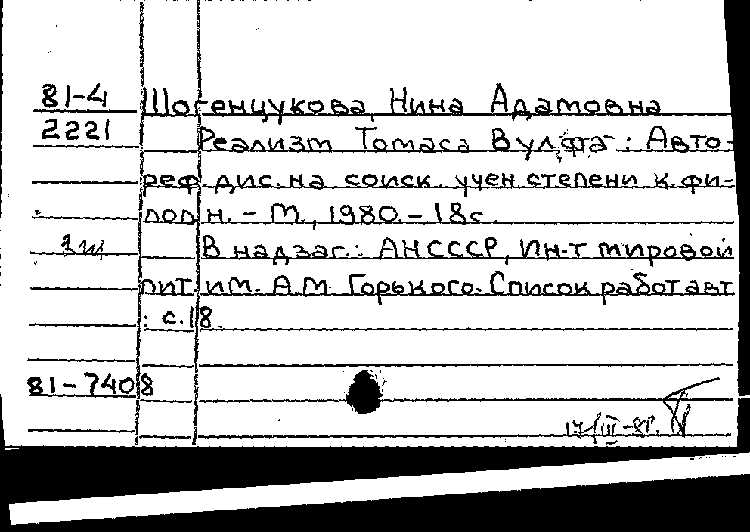 81-4 Шогенцукова, Нина Адамовна
2221 Реализм Томаса Вулфа : Авто-
реф. дис. на соиск. учен. степени к. фи-
лол. н. - М., 1980. - 18 с.
В надзаг.: АН СССР, Ин-т мировой
лит. им. А.М. Горького. Список работ авт.
: с. 18.
81-7408
17/III-81.